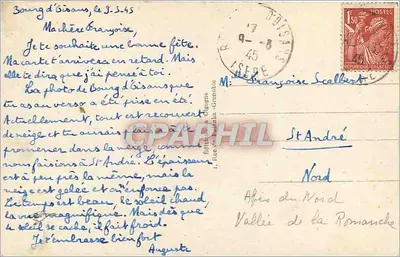 Bourg d'Oisans, le 9.3.45
Ma chère Françoise,
Je te souhaite une bonne fête.
Ma carte t'arrivera en retard. Mais
elle te dira que j'ai pensé à toi.
La photo de Bourg d'Oisans que
tu as au verso a été prise en été.
Actuellement, tout est recouvert
de neige et tu aurais pu te
promener dans la neige comme
nous faisions à St André. L'épaisseur
est à peu près la même, mais la
neige est gelée et on n'enfonce pas.
Le temps est beau, le soleil chaud,
la vue magnifique. Mais dès que
le soleil se cache, il fait froid.
Je t'embrasse bien fort
Augusta
D'OISANS
17
9-3
45
ISERE
POSTES
1F50
Melle Françoise Scalbert
St André
Nord
Alpes du Nord
Vallée de la Romanche
CPAPHIL